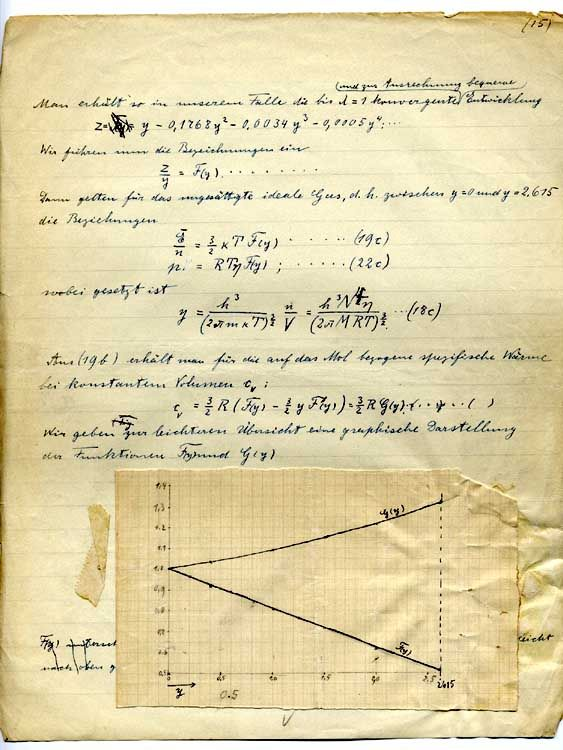 (15)
(und zur Ausrechnung bequeme)
Man erhält so in unserem Falle die bis λ = 1 konvergente Entwicklung
z = y - 0,1768 y² - 0,0034 y³ - 0,0005 y⁴ ...
Wir führen nun die Bezeichnungen ein
z/y = F(y) . . . . . . . .
Dann gelten für das ungesättigte ideale Gas, d. h. zwischen y = 0 und y = 2,615
die Beziehungen
Ē/n = 3/2 κT F(y) . . . . . . (19c)
p = RTη F(y) ; . . . . . . (22c)
wobei gesetzt ist
y = h³/(2πmκT)^{3/2} n/V = h³N⁴η/(2πMRT)^{3/2} ... (18c)
Aus (19b) erhält man für die auf das Mol bezogene spezifische Wärme
bei konstantem Volumen c_v :
c_v = 3/2 R (F(y) - 3/2 y F'(y)) = 3/2 R G(y) . . . . . ( )
Wir geben zur leichteren Übersicht eine graphische Darstellung
der Funktionen F(y) und G(y)
1.4
1.3
1.2
1.1
1.0
0.9
0.8
0.5
G(y)
F(y)
0
0.5
1.0
1.5
2,0
2.5
2.615
y
0.5
F(y)
leicht
nach oben g